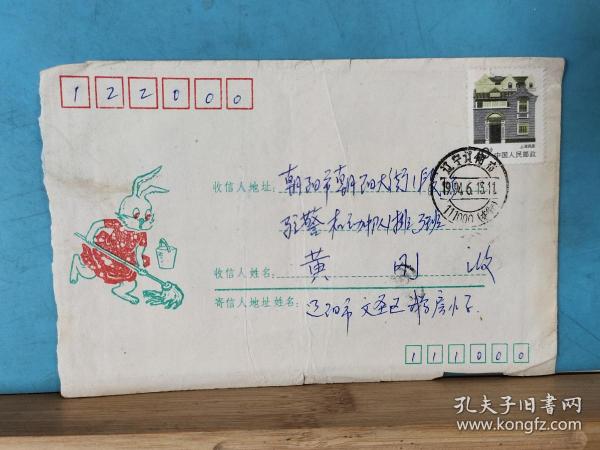 122000
上海民居
中国人民邮政
辽宁辽阳市
1994.6.15.11
111000
收信人地址: 朝阳市朝阳大街1段
驻警机动中队1排3班
收信人姓名: 黄 刚 收
寄信人地址姓名: 辽阳市文圣区
111000
孔夫子旧书网
www.kongfz.com